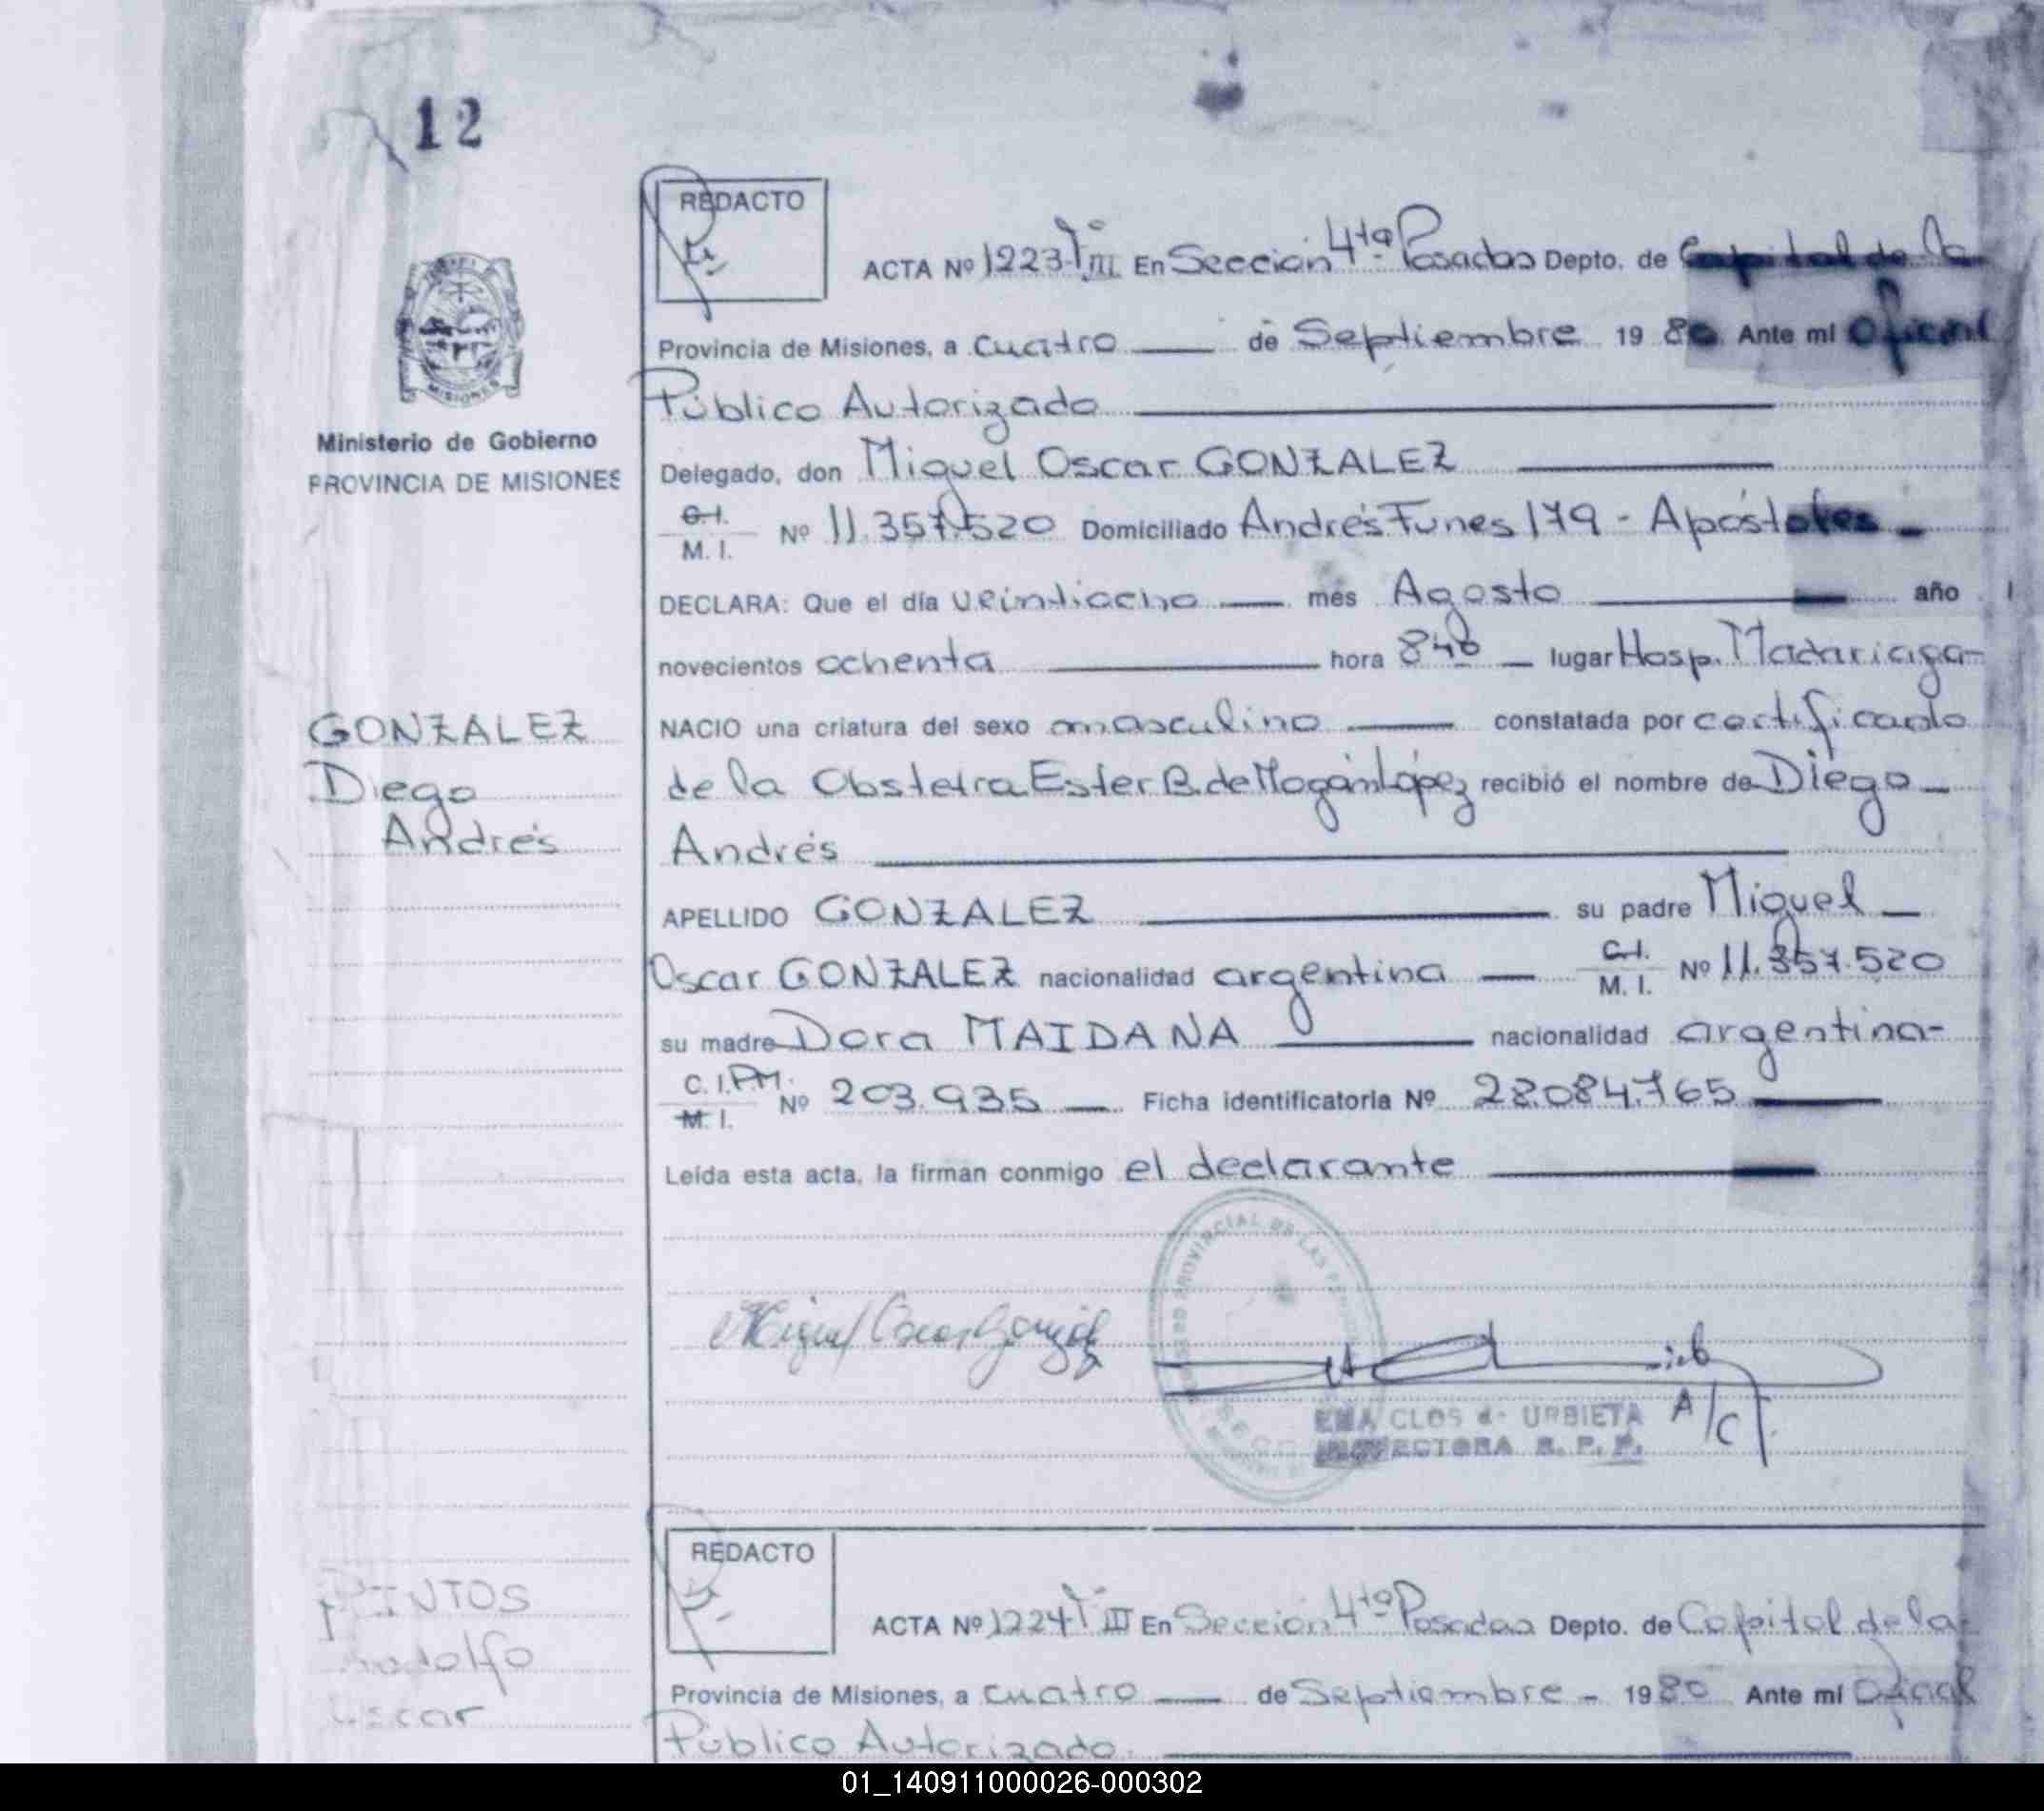 12
REDACTO
ACTA Nº 1223 Tº III En Sección 4ta Posadas Depto. de Capital de la
Provincia de Misiones, a cuatro de Septiembre 1980 Ante mí Oficial
Público Autorizado
Ministerio de Gobierno
PROVINCIA DE MISIONES
Delegado, don Miguel Oscar GONZALEZ
C.I.
M. I. Nº 11.357.520 Domiciliado Andrés Funes 179 - Apóstoles -
DECLARA: Que el día veintiocho mes Agosto año 1
novecientos ochenta hora 840 lugar Hosp. Madariaga-
GONZALEZ
Diego
Andrés
NACIO una criatura del sexo masculino constatada por certificado
de la Obstetra Ester B. de López recibió el nombre de Diego
Andrés
APELLIDO GONZALEZ su padre Miguel
Oscar GONZALEZ nacionalidad argentina C.I.
M. I. Nº 11.357.520
su madre Dora MAIDANA nacionalidad argentina-
C.I.PM.
M. I. Nº 203.935 Ficha identificatoria Nº 28.084.765
Leída esta acta, la firman conmigo el declarante
Miguel Oscar González
EMA CLOS de URBIETA A/C
R. P. P.
REDACTO
PINTOS
Rodolfo
Oscar
ACTA Nº 1224 Tº III En Sección 4ta Posadas Depto. de Capital de la
Provincia de Misiones, a cuatro de Septiembre - 1980 Ante mí Oficial
Público Autorizado
01_140911000026-000302